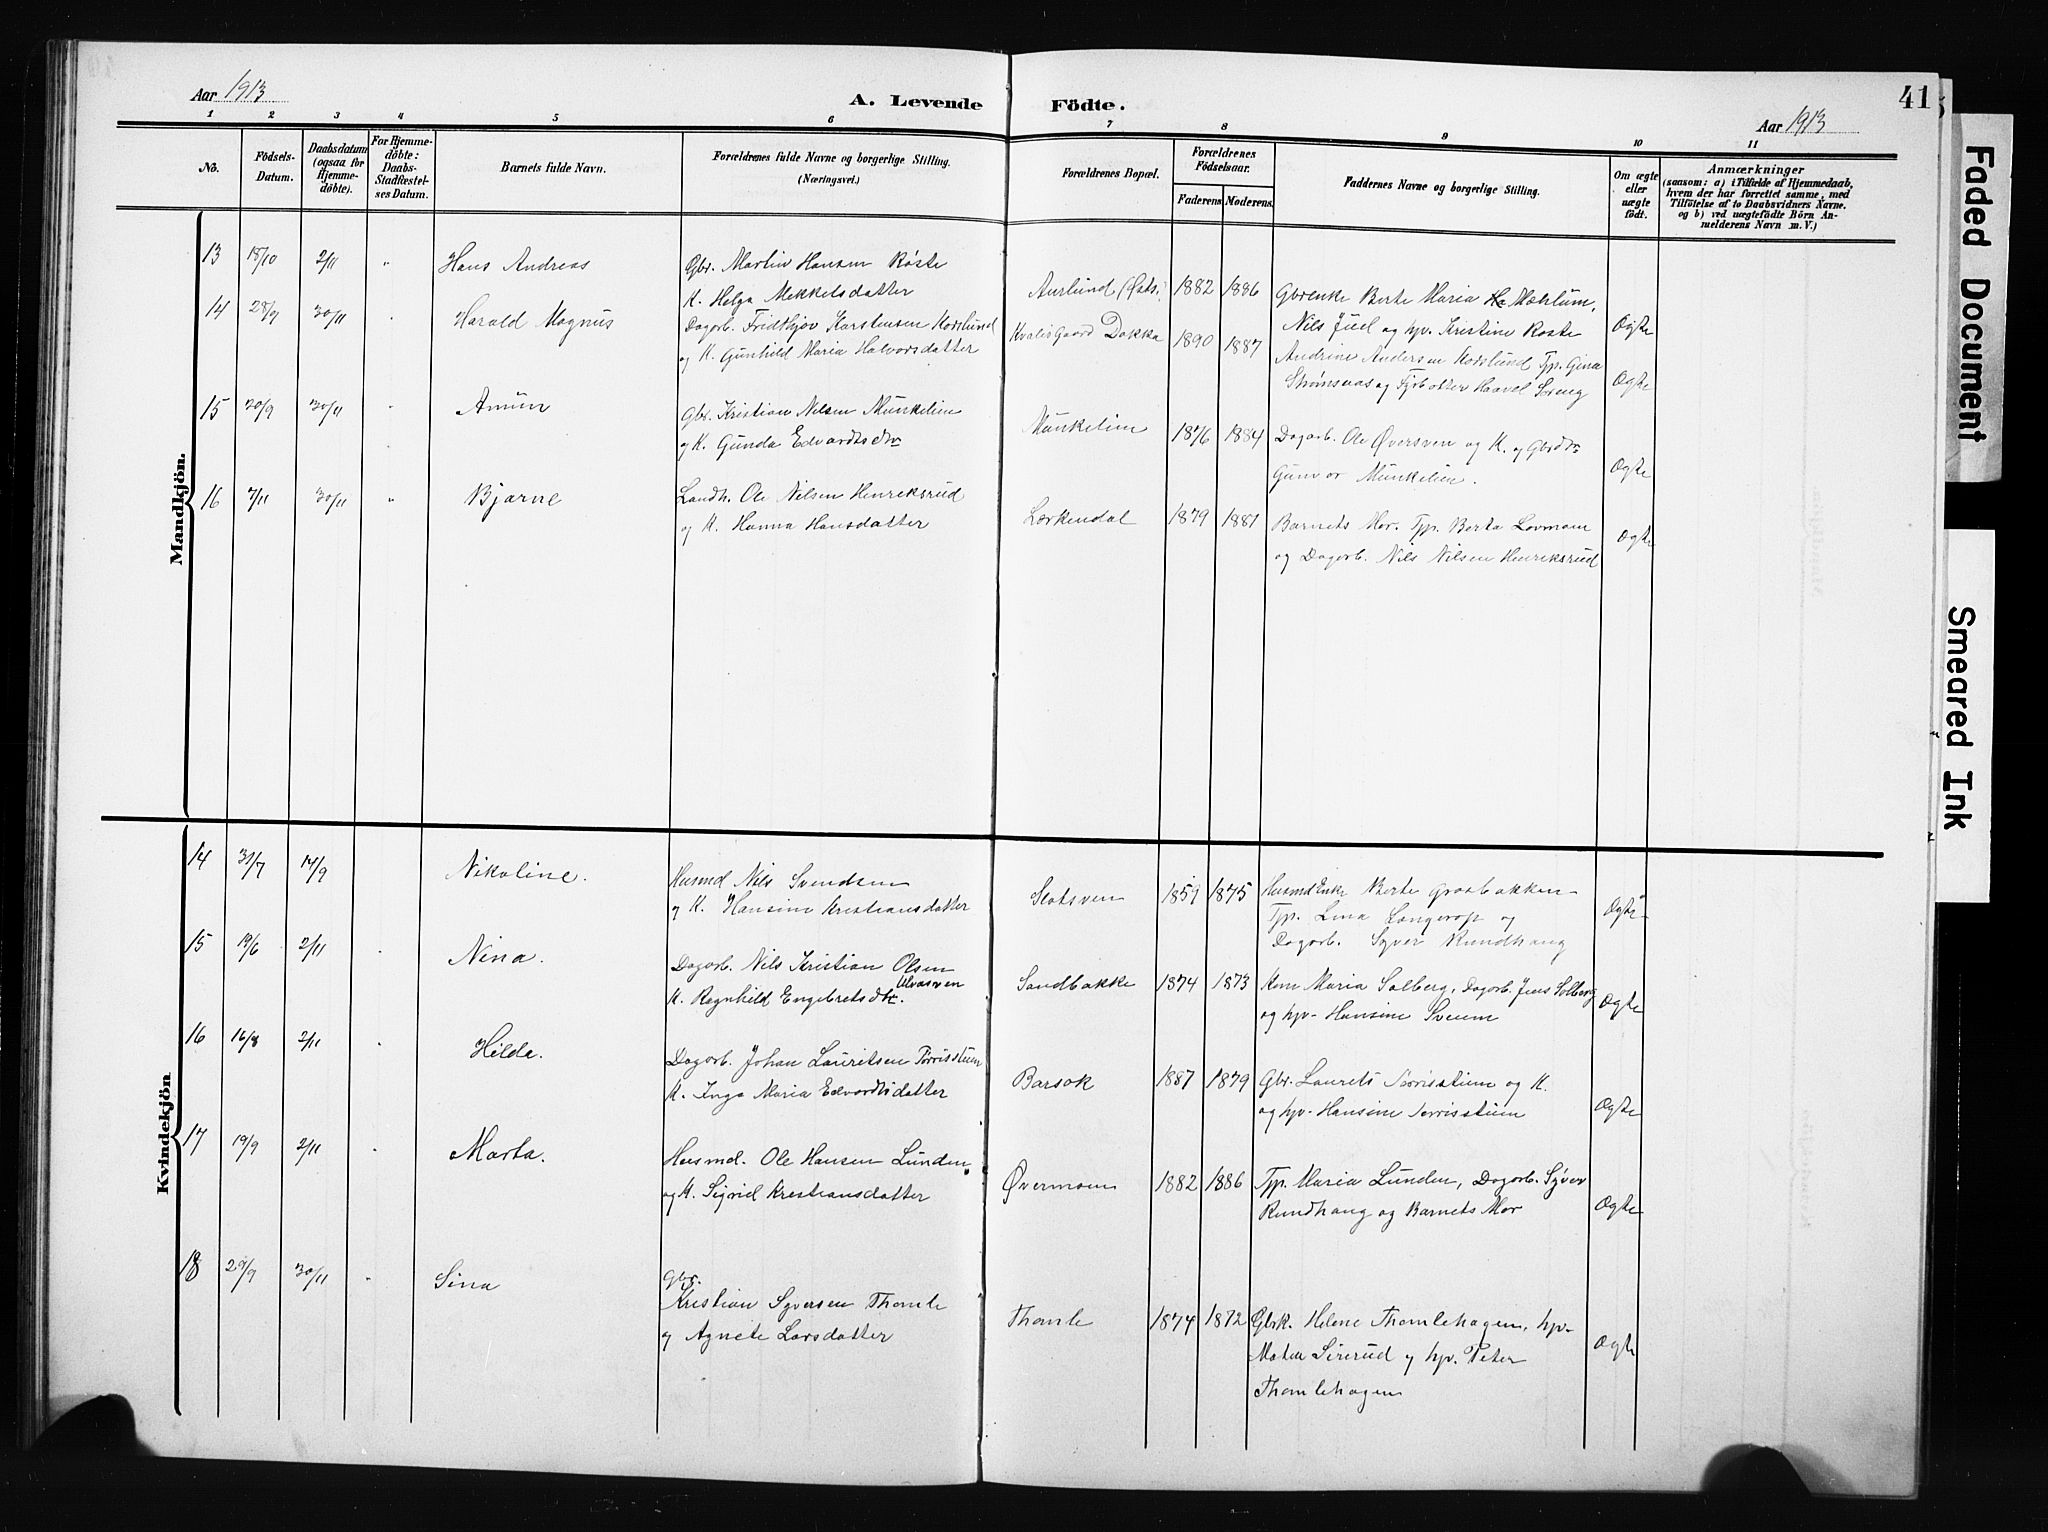 Aar 1913
A. Levende Födte.
Aar 1913
41
1 2 3 4 5 6 7 8 9 10 11
No.
Födsels-
Datum.
Daabsdatum
(ogsaa for
Hjemme-
döbte).
For Hjemme-
döbte:
Daabs-
Stadfæstel-
ses Datum.
Barnets fulde Navn.
Forældrenes fulde Navne og borgerlige Stilling.
(Næringsvei.)
Forældrenes Bopæl.
Forældrenes
Födselsaar.
Faderens Moderens
Faddernes Navne og borgerlige Stilling.
Om ægte
eller
uægte
födt.
Anmærkninger
(saasom: a) i Tilfælde af Hjemmedaab,
hvem der har forrettet samme, med
Tilföielse af to Daabsvidners Navne.
og b) ved uægtefödte Börn An-
melderens Navn m. V.)
Mandkjön.
13 18/10 2/11 " Hans Andreas
Gbr. Martin Hansen Røste
K. Helga Mekkelsdatter
Aurlund (Østs.) 1882 1886
Gbrenke Berte Maria Mæhlum,
Nils Juel og hp. Kristine Røste
Ægte
14 28/9 30/11 " Harald Magnus
Dagarb. Fridthjov Karstensen Kodslund
og K. Gunhild Maria Halvorsdatter
Kvalesgaard Dokka 1890 1887
Andrine Andersen Kodslund Tp. Gina
Strømsaas og Havel Soreng
Ægte
15 30/9 30/11 " Amün
Gbr. Kristian Nilsen Münkelien
og K. Gunda Edvardtsdtr
Münkelien 1876 1884
Dagarb. Ole Øversven og K. og Gbrdtr
Gunvor Münkelien.
Ægte
16 7/11 30/11 " Bjarne
Landh. Ole Nilsen Henriksrud
og K. Hanna Hansdatter
Lærkendal 1879 1881
Barnets Mor. Tp. Berta Lovmoen
og Dagarb. Nils Nilsen Henriksrud
Ægte
Kvindekjön
14 31/7 14/9 Nikoline.
Husmd Nils Svendsen
og K. Hansine Kristiansdatter
Slotsven 1859 1875
Husmd Enke Berte Graabakken
Tp. Lina Langerop og
Dagarb. Syver Rundhaug
Ægte
15 19/6 2/11 " Nina.
Dagarb. Nils Kristian Olsen
Ulvasven
K. Ragnhild Engebretsdtr.
Sandbakke 1874 1873
Kone Maria Solberg, Dagarb. Jens Solberg
og hp. Hansine Sveum
Ægte
16 16/8 2/11 " Hilda.
Dagarb. Johan Lauritsen Torrisstuen
K. Inga Maria Edvardtsdatter
Barsok 1887 1879
Gbr. Laurets Torrisstuen og K.
og hp. Hansine Torrisstuen
Ægte
17 19/9 2/11 " Marta.
Husmd. Ole Hansen Lunden
og K. Sigrid Kristiansdatter
Øvermoen 1882 1886
Tp. Maria Lunden, Dagarb. Syver
Rundhaug og Barnets Mor
Ægte
18 29/9 30/11 " Sina
Gbr.
Kristian Syversen Thomle
og Agnete Larsdatter
Thomle 1874 1872
Gbrk. Helene Thomlehagen, hp.
Matea Sirerud og hp. Peter
Thomlehagen
Ægte
Faded Document
Smeared Ink